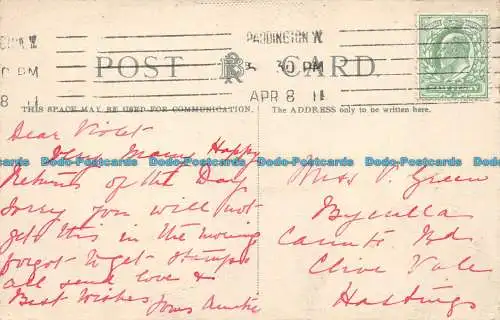 PADDINGTON W.
30 PM
APR 8 11
8 11
POST CARD
THIS SPACE MAY BE USED FOR COMMUNICATION.
The ADDRESS only to be written here.
Dear Violet
Many Happy
Returns of the Day
Sorry you will not
get this in the morning
forgot to get stamps
all send love &
Best Wishes
from Auntie
Miss V. Green
Byculla
Rd
Clive Vale
Hastings
Dodo-Postcards Dodo-Postcards Dodo-Postcards Dodo-Postcards
Dodo-Postcards Dodo-Postcards Dodo-Postcards Dodo-Postcards